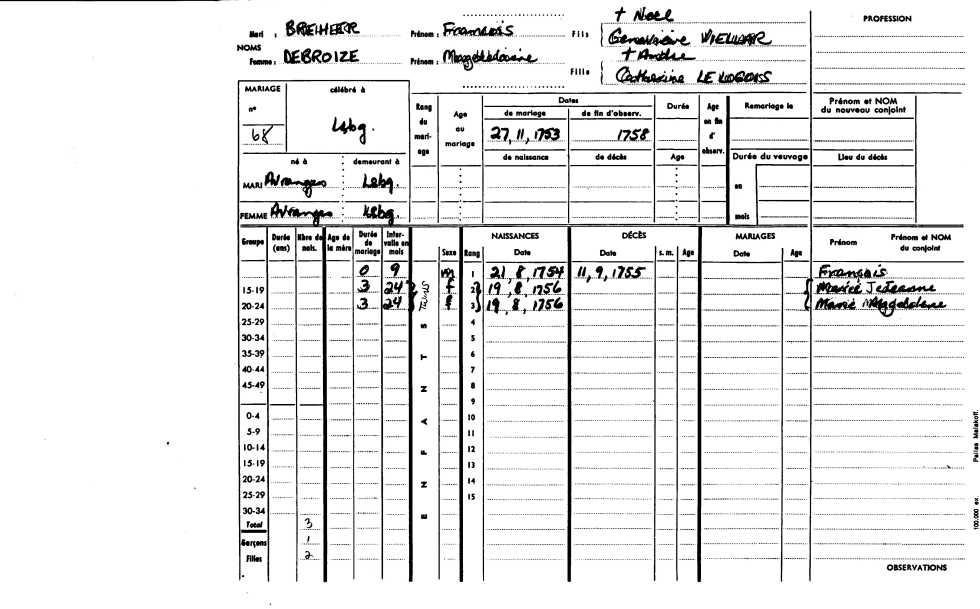 † Noel
PROFESSION
Mari : BREHIER Prénom : François Fils Geneviève
NOMS
Femme : DEBROIZE Prénom : Magdelaine Fille † André
Catherine LE LOGEAIS
MARIAGE célébré à
Rang du mari-age Age au mariage Dates Durée Age en fin d' observ. Remariage le Prénom et NOM du nouveau conjoint
de mariage de fin d'observ.
n°
68 Lsbg. 27, 11, 1753 1758
né à demeurant à de naissance de décès Age Durée du veuvage Lieu du décès
MARI Avranges Lsbg. en
FEMME Avranges Lsbg. mois
Groupe Durée (ans) Nbre de nais. Age de la mère Durée de mariage Inter-valle en mois ENFANTS Sexe Rang NAISSANCES Date DÉCÈS Date s. m. Age MARIAGES Date Age Prénom Prénom et NOM du conjoint
0 9 M 1 21, 8, 1754 11, 9, 1755 François
15-19 3 24 TWINS f 2 19, 8, 1756 Marie
20-24 3 24 f 3 19, 8, 1756 Marie Magdelene
25-29 4
30-34 5
35-39 6
40-44 7
45-49 8
9
0-4 10
5-9 11
10-14 12
15-19 13
20-24 14
25-29 15
30-34
Total 3
Garçons 1
Filles 2
OBSERVATIONS
100.000 ex. Pallas Malakoff.